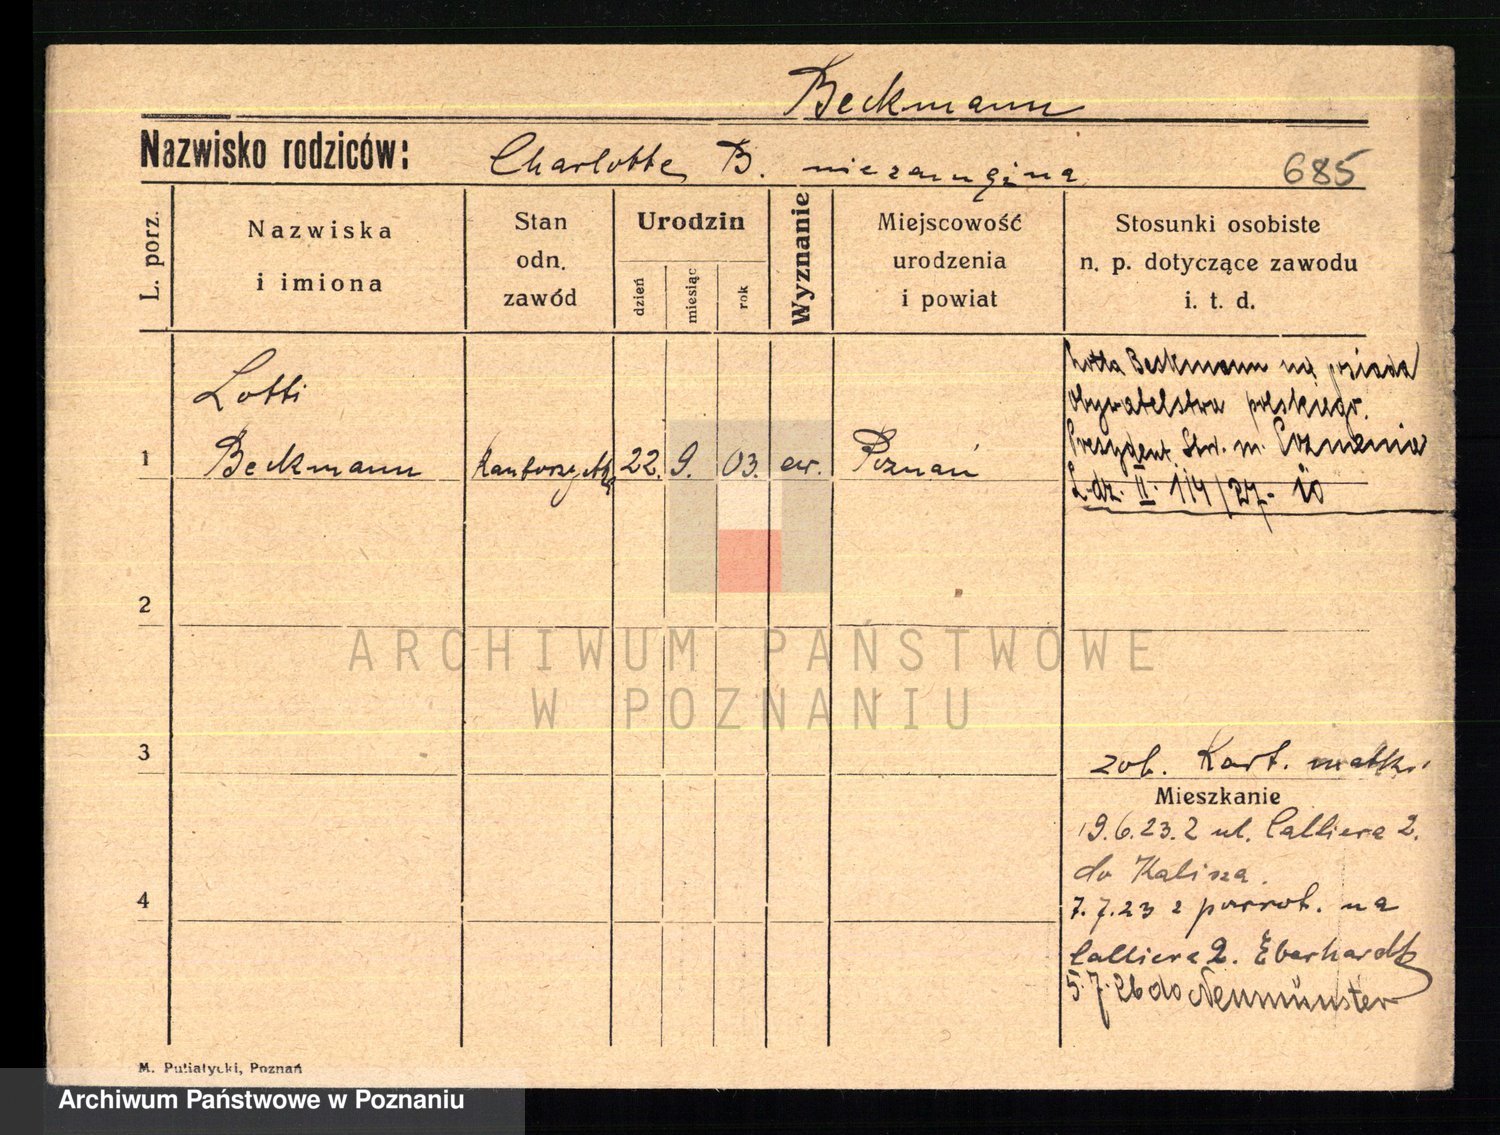 Beckmann
Nazwisko rodziców: Charlotte B. niezamężna 685
L. porz.
Nazwiska
i imiona
Stan
odn.
zawód
Urodzin
dzień
miesiąc
rok
Wyznanie
Miejscowość
urodzenia
i powiat
Stosunki osobiste
n. p. dotyczące zawodu
i. t. d.
Lotti
1 Beckmann 22. 9. 03. ew. Poznań
Beckmann
obywatelstwa polskiego.
Prezydent m. Poznania
L. dz. II. 114/27.
2
3
zob. Kart. matki
Mieszkanie
19.6.23. z ul. Calliera 2.
do Kalisza.
4
7.7.23 z powrot. na
Calliera 2. Eberhardt
5.7.26 do Neumünster
M. Putiatycki, Poznań
ARCHIWUM PAŃSTWOWE
W POZNANIU
Archiwum Państwowe w Poznaniu